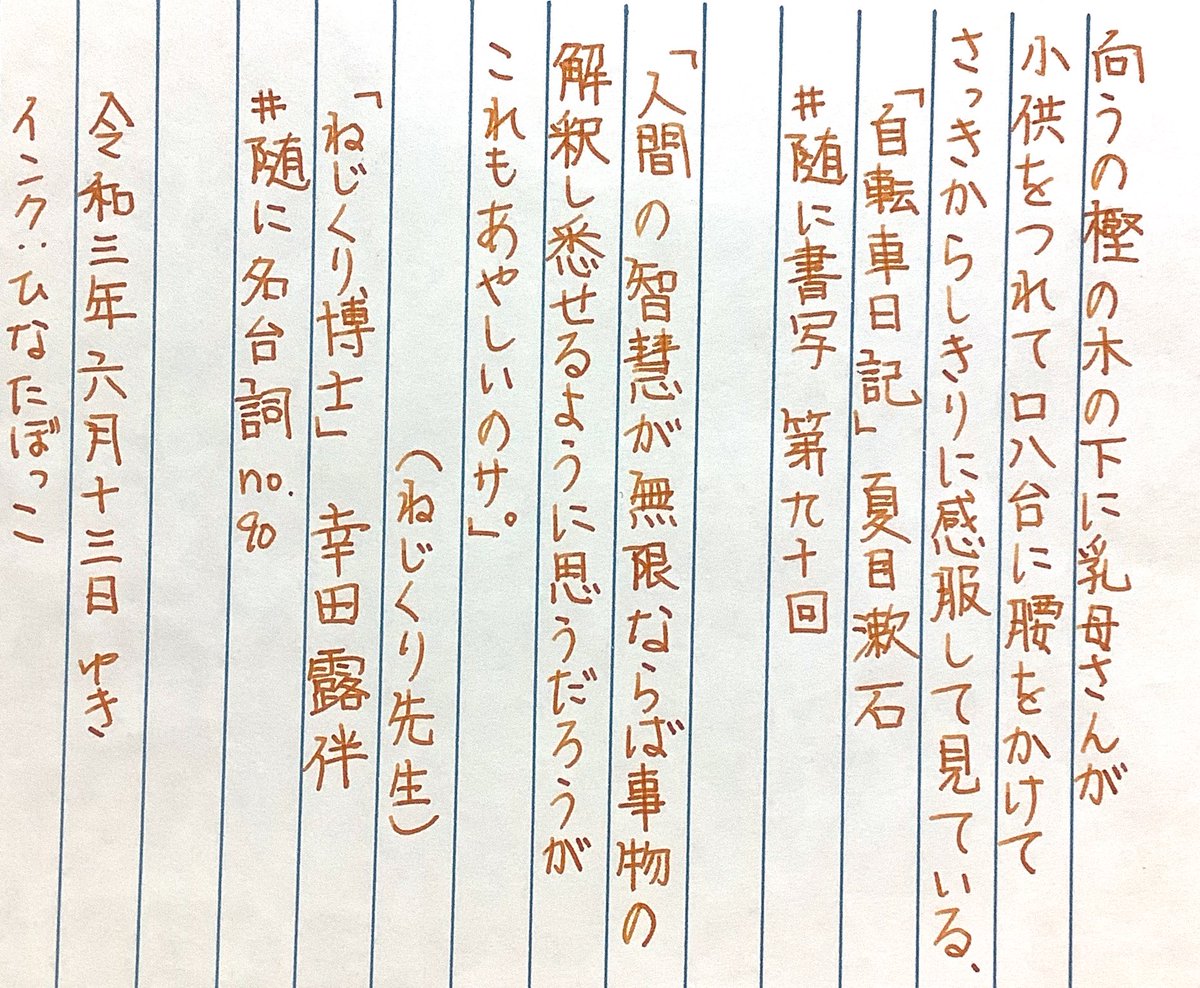 向うの樫の木の下に乳母さんが
小供をつれてロハ台に腰をかけて
さっきからしきりに感服して見ている、
「自転車日記」夏目漱石
#随に書写 第九十回
「人間の智慧が無限ならば事物の
解釈し悉せるように思うだろうが
これもあやしいのサ。」
(ねじくり先生)
「ねじくり博士」 幸田露伴
#随に名台詞 no.90
令和三年六月十三日 ゆき
インク:ひなたぼっこ